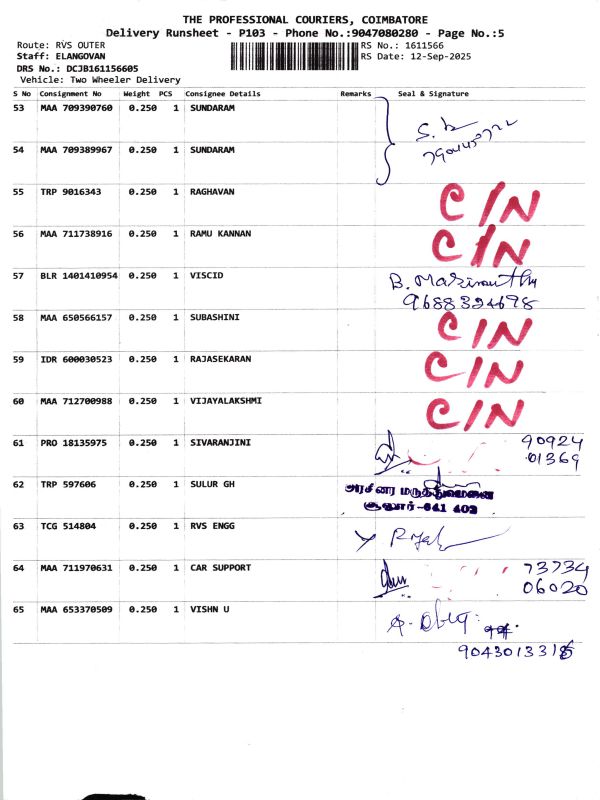 THE PROFESSIONAL COURIERS, COIMBATORE
Delivery Runsheet - P103 - Phone No.:9047080280 - Page No.:5
Route: RVS OUTER RS No.: 1611566
Staff: ELANGOVAN RS Date: 12-Sep-2025
DRS No.: DCJB161156605
Vehicle: Two Wheeler Delivery
S No Consignment No Weight PCS Consignee Details Remarks Seal & Signature
53 MAA 709390760 0.250 1 SUNDARAM
54 MAA 709389967 0.250 1 SUNDARAM
55 TRP 9016343 0.250 1 RAGHAVAN C/N
56 MAA 711738916 0.250 1 RAMU KANNAN C/N
57 BLR 1401410954 0.250 1 VISCID B. Marimuthu
9688324698
58 MAA 650566157 0.250 1 SUBASHINI C/N
59 IDR 600030523 0.250 1 RAJASEKARAN C/N
60 MAA 712700988 0.250 1 VIJAYALAKSHMI C/N
61 PRO 18135975 0.250 1 SIVARANJINI 90924
01369
62 TRP 597606 0.250 1 SULUR GH அரசினர் மருத்துவமனை
சூலூர்-641 402
63 TCG 514804 0.250 1 RVS ENGG
64 MAA 711970631 0.250 1 CAR SUPPORT 73734
06020
65 MAA 653370509 0.250 1 VISHN U